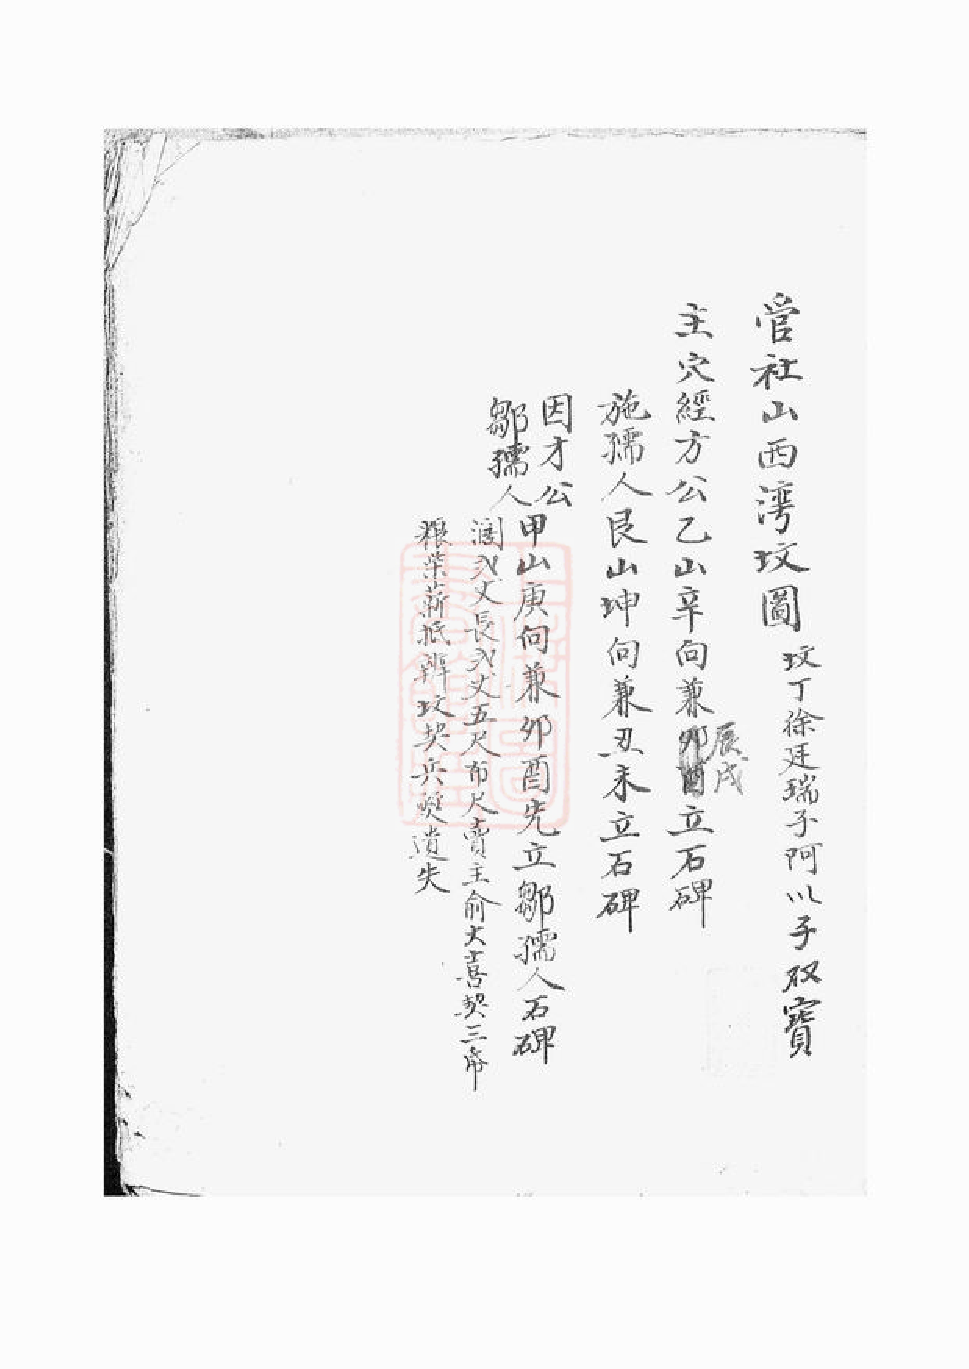 管社山西湾坟圖 坟丁徐廷瑞子阿以子双寶
主穴經方公乙山辛向兼卯酉立石碑
辰戌
施孺人艮山坤向兼丑未立石碑
因才公
鄒孺人
甲山庚向兼卯酉先立鄒孺人石碑
濶弍丈長弍丈五尺布尺賣主俞大喜契三帋
粮柴薪抵辨坟契兵燹遺失